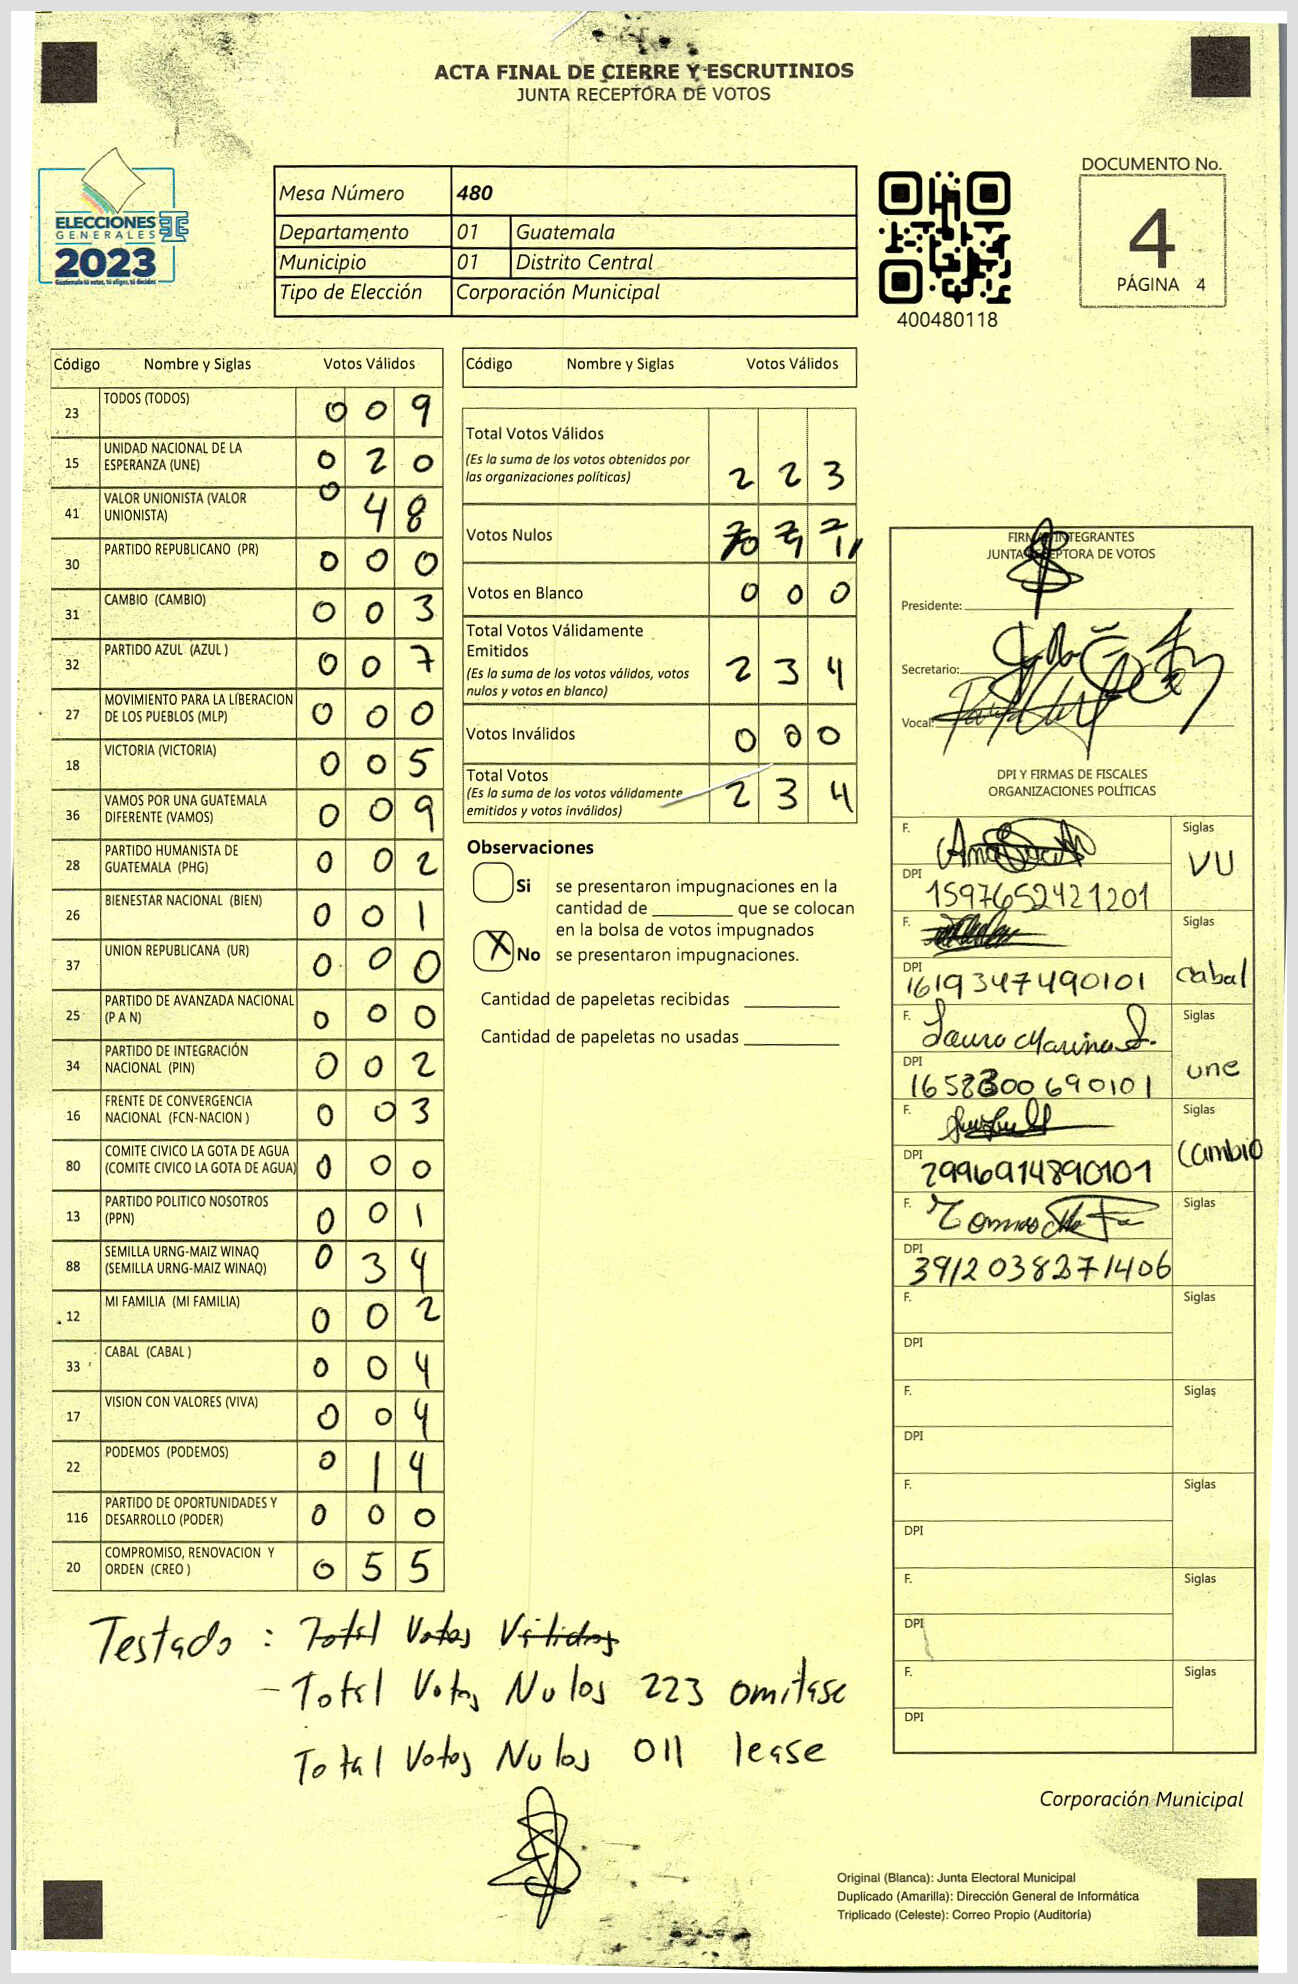 ACTA FINAL DE CIERRE Y ESCRUTINIOS
JUNTA RECEPTORA DE VOTOS
ELECCIONES
GENERALES
2023
Guatemala tú votas, tú eliges, tú decides
Mesa Número 480
Departamento 01 Guatemala
Municipio 01 Distrito Central
Tipo de Elección Corporación Municipal
400480118
DOCUMENTO No.
4
PÁGINA 4
Código Nombre y Siglas Votos Válidos
23 TODOS (TODOS) 0 0 9
15 UNIDAD NACIONAL DE LA
ESPERANZA (UNE) 0 2 0
41 VALOR UNIONISTA (VALOR
UNIONISTA) 0 4 8
30 PARTIDO REPUBLICANO (PR) 0 0 0
31 CAMBIO (CAMBIO) 0 0 3
32 PARTIDO AZUL (AZUL ) 0 0 7
27 MOVIMIENTO PARA LA LIBERACION
DE LOS PUEBLOS (MLP) 0 0 0
18 VICTORIA (VICTORIA) 0 0 5
36 VAMOS POR UNA GUATEMALA
DIFERENTE (VAMOS) 0 0 9
28 PARTIDO HUMANISTA DE
GUATEMALA (PHG) 0 0 2
26 BIENESTAR NACIONAL (BIEN) 0 0 1
37 UNION REPUBLICANA (UR) 0 0 0
25 PARTIDO DE AVANZADA NACIONAL
(P A N) 0 0 0
34 PARTIDO DE INTEGRACIÓN
NACIONAL (PIN) 0 0 2
16 FRENTE DE CONVERGENCIA
NACIONAL (FCN-NACION ) 0 0 3
80 COMITE CIVICO LA GOTA DE AGUA
(COMITE CIVICO LA GOTA DE AGUA) 0 0 0
13 PARTIDO POLITICO NOSOTROS
(PPN) 0 0 1
88 SEMILLA URNG-MAIZ WINAQ
(SEMILLA URNG-MAIZ WINAQ) 0 3 4
12 MI FAMILIA (MI FAMILIA) 0 0 2
33 CABAL (CABAL ) 0 0 4
17 VISION CON VALORES (VIVA) 0 0 4
22 PODEMOS (PODEMOS) 0 1 4
116 PARTIDO DE OPORTUNIDADES Y
DESARROLLO (PODER) 0 0 0
20 COMPROMISO, RENOVACION Y
ORDEN (CREO ) 0 5 5
Código Nombre y Siglas Votos Válidos
Total Votos Válidos
(Es la suma de los votos obtenidos por
las organizaciones políticas) 2 2 3
Votos Nulos
Votos en Blanco 0 0 0
Total Votos Válidamente
Emitidos
(Es la suma de los votos válidos, votos
nulos y votos en blanco) 2 3 4
Votos Inválidos 0 0 0
Total Votos
(Es la suma de los votos válidamente
emitidos y votos inválidos) 2 3 4
Observaciones
Si se presentaron impugnaciones en la
cantidad de ________ que se colocan
en la bolsa de votos impugnados
X No se presentaron impugnaciones.
Cantidad de papeletas recibidas
Cantidad de papeletas no usadas
FIRMAS INTEGRANTES
JUNTA RECEPTORA DE VOTOS
Presidente:
Secretario:
Vocal:
DPI Y FIRMAS DE FISCALES
ORGANIZACIONES POLÍTICAS
F. Siglas
VU
DPI 1597652421201
F. Siglas
cabal
DPI 1619347490101
F. Laura Marina Siglas
une
DPI
F. Siglas
Cambio
DPI 2996914890101
F. Siglas
DPI 3912038271406
F. Siglas
DPI
F. Siglas
DPI
F. Siglas
DPI
F. Siglas
DPI
F. Siglas
DPI
Testado : Total Votos Válidos
- Total Votos Nulos 223 omitase
Total Votos Nulos 011 lease
Corporación Municipal
Original (Blanca): Junta Electoral Municipal
Duplicado (Amarilla): Dirección General de Informática
Triplicado (Celeste): Correo Propio (Auditoría)